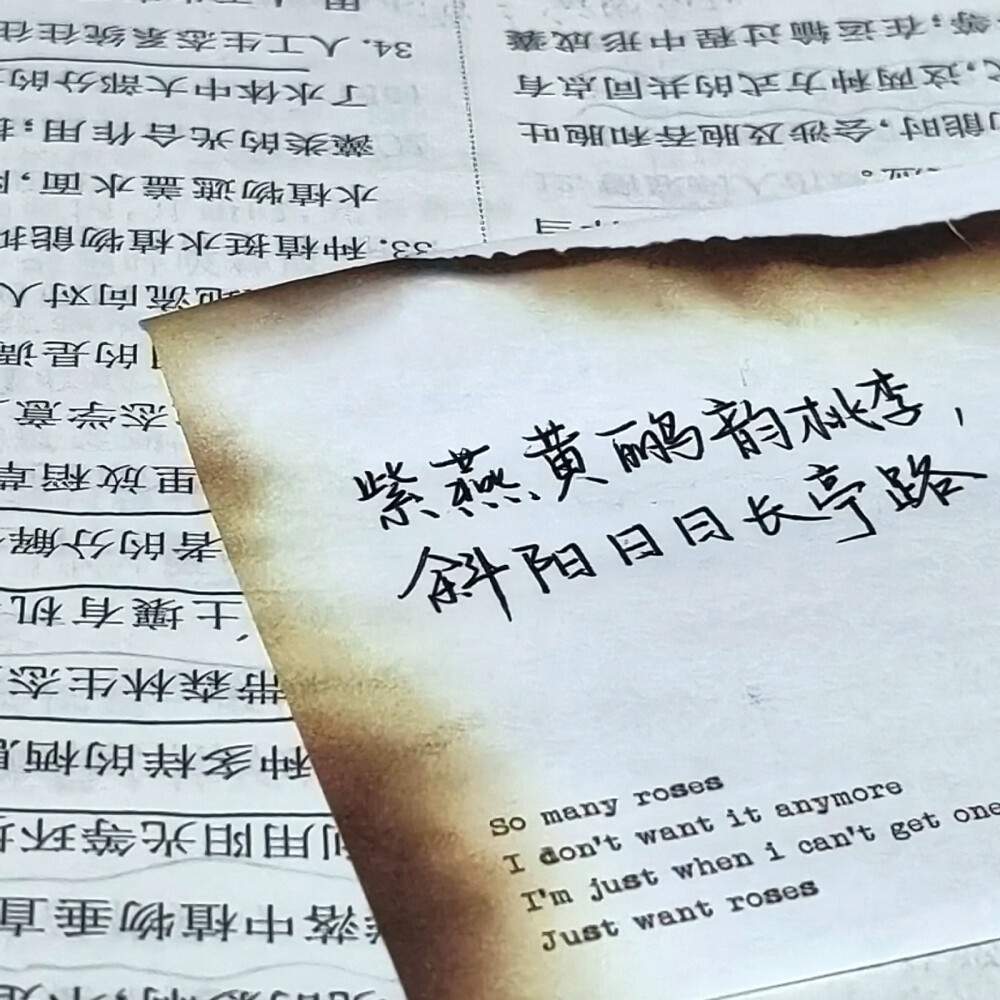 紫燕黄鹂韵桃李，
斜阳日日长亭路
So many roses
I don't want it anymore
I'm just when i can't get one
Just want roses
能时，会涉及胞吞和胞吐
，这两种方式的共同点有
等；在运输过程中形成囊
落中植物垂直
利用阳光等环
种多样的栖
带森林生态
土壤有机
者的分解
里放稻草
态学意
的是调
流向对人
33. 种植挺水植物能抑
水植物遮盖水面，
藻类的光合作用；
了水体中大部分的
34. 人工生态系统往往